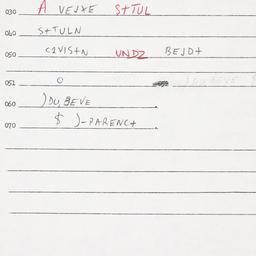 030 A VEJXE S+TUL
040 S+TULN
050 C1VIS+N UNDZ BEJD+
051 0
060 )DU, BEVE .
070 $ )-PARENC+ .